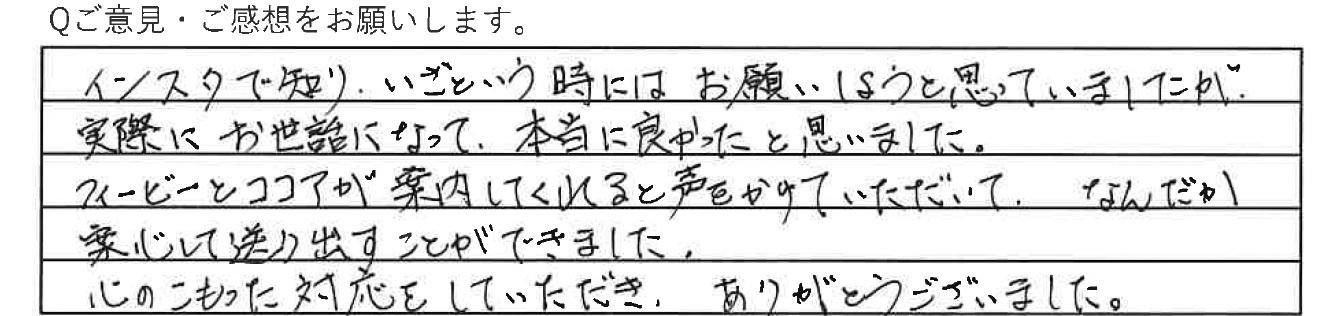 Qご意見・ご感想をお願いします。
インスタで知り、いざという時にはお願いしようと思っていましたが、
実際にお世話になって、本当に良かったと思いました。
フィービーとココアが案内してくれると声をかけていただいて、なんだか
安心して送り出すことができました。
心のこもった対応をしていただき、ありがとうございました。